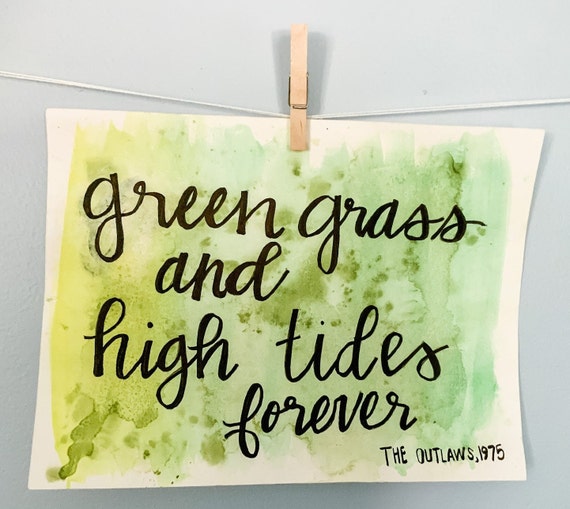 green grass
and
high tides
forever
THE OUTLAWS, 1975